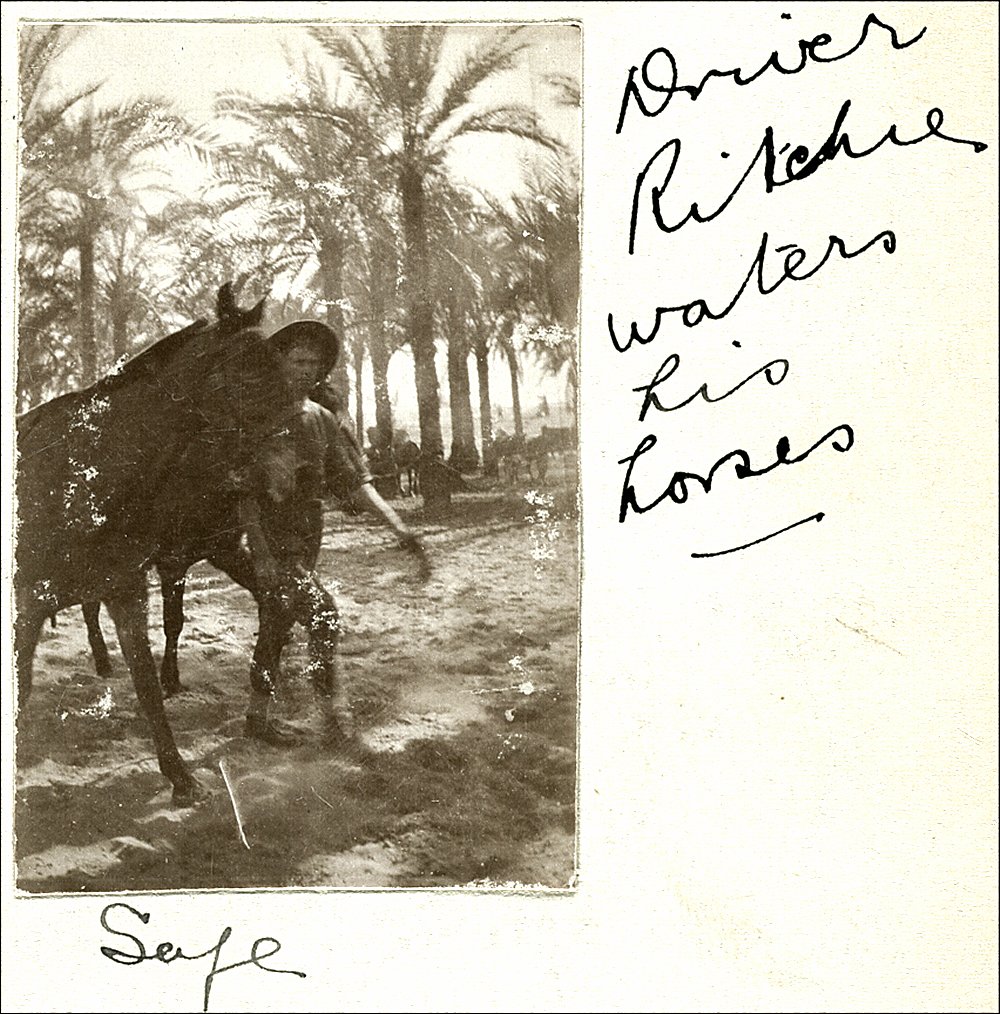 Driver
Ritchie
waters
his
horses
Safe